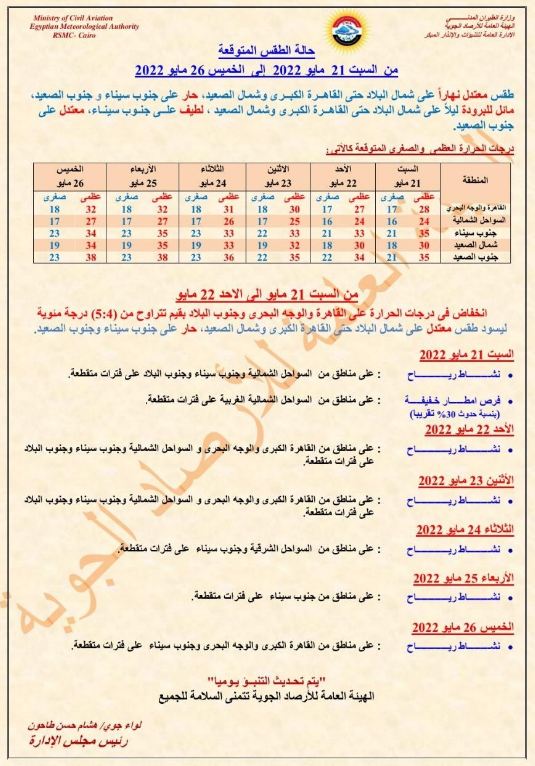 Ministry of Civil Aviation
Egyptian Meteorological Authority
RSMC- Cairo
وزارة الطيران المدني
الهيئة العامة للأرصاد الجوية
الإدارة العامة للتنبؤات والإنذار المبكر
حالة الطقس المتوقعة
من السبت 21 مايو 2022 إلى الخميس 26 مايو 2022
طقس معتدل نهاراً على شمال البلاد حتى القاهرة الكبرى وشمال الصعيد، حار على جنوب سيناء و جنوب الصعيد،
مائل للبرودة ليلاً على شمال البلاد حتى القاهرة الكبرى وشمال الصعيد ، لطيف على جنوب سيناء، معتدل على
جنوب الصعيد.
درجات الحرارة العظمى والصغرى المتوقعة كالآتى:
المنطقة السبت 21 مايو الأحد 22 مايو الاثنين 23 مايو الثلاثاء 24 مايو الأربعاء 25 مايو الخميس 26 مايو
عظمى صغرى عظمى صغرى عظمى صغرى عظمى صغرى عظمى صغرى عظمى صغرى
القاهرة والوجه البحرى 28 17 27 17 30 18 31 18 33 18 32 18
السواحل الشمالية 24 16 24 16 25 17 26 17 27 17 27 17
جنوب سيناء 35 21 33 21 33 22 33 23 35 23 34 23
شمال الصعيد 30 18 30 18 32 19 33 19 35 19 34 19
جنوب الصعيد 35 21 34 21 35 22 36 23 38 23 38 23
من السبت 21 مايو الى الاحد 22 مايو
انخفاض فى درجات الحرارة على القاهرة والوجه البحرى وجنوب البلاد بقيم تتراوح من (5:4) درجة مئوية
ليسود طقس معتدل على شمال البلاد حتى القاهرة الكبرى وشمال الصعيد، حار على جنوب سيناء وجنوب الصعيد.
السبت 21 مايو 2022
• نشاط رياح : على مناطق من السواحل الشمالية وجنوب سيناء وجنوب البلاد على فترات متقطعة.
• فرص امطار خفيفة : على مناطق من السواحل الشمالية الغربية على فترات متقطعة.
(بنسبة حدوث 30% تقريبا)
الأحد 22 مايو 2022
• نشاط رياح : على مناطق من القاهرة الكبرى والوجه البحرى و السواحل الشمالية وجنوب سيناء وجنوب البلاد
على فترات متقطعة.
الأثنين 23 مايو 2022
• نشاط رياح : على مناطق من القاهرة الكبرى والوجه البحرى و السواحل الشمالية وجنوب سيناء وجنوب البلاد
على فترات متقطعة.
الثلاثاء 24 مايو 2022
• نشاط رياح : على مناطق من السواحل الشرقية وجنوب سيناء على فترات متقطعة.
الأربعاء 25 مايو 2022
• نشاط رياح : على مناطق من جنوب سيناء على فترات متقطعة.
الخميس 26 مايو 2022
• نشاط رياح : على مناطق من القاهرة الكبرى والوجه البحرى وجنوب سيناء على فترات متقطعة.
"يتم تحديث التنبؤ يوميا"
الهيئة العامة للأرصاد الجوية تتمنى السلامة للجميع
لواء جوي/ هشام حسن طاحون
رئيس مجلس الإدارة
الهيئة العامة للأرصاد الجوية